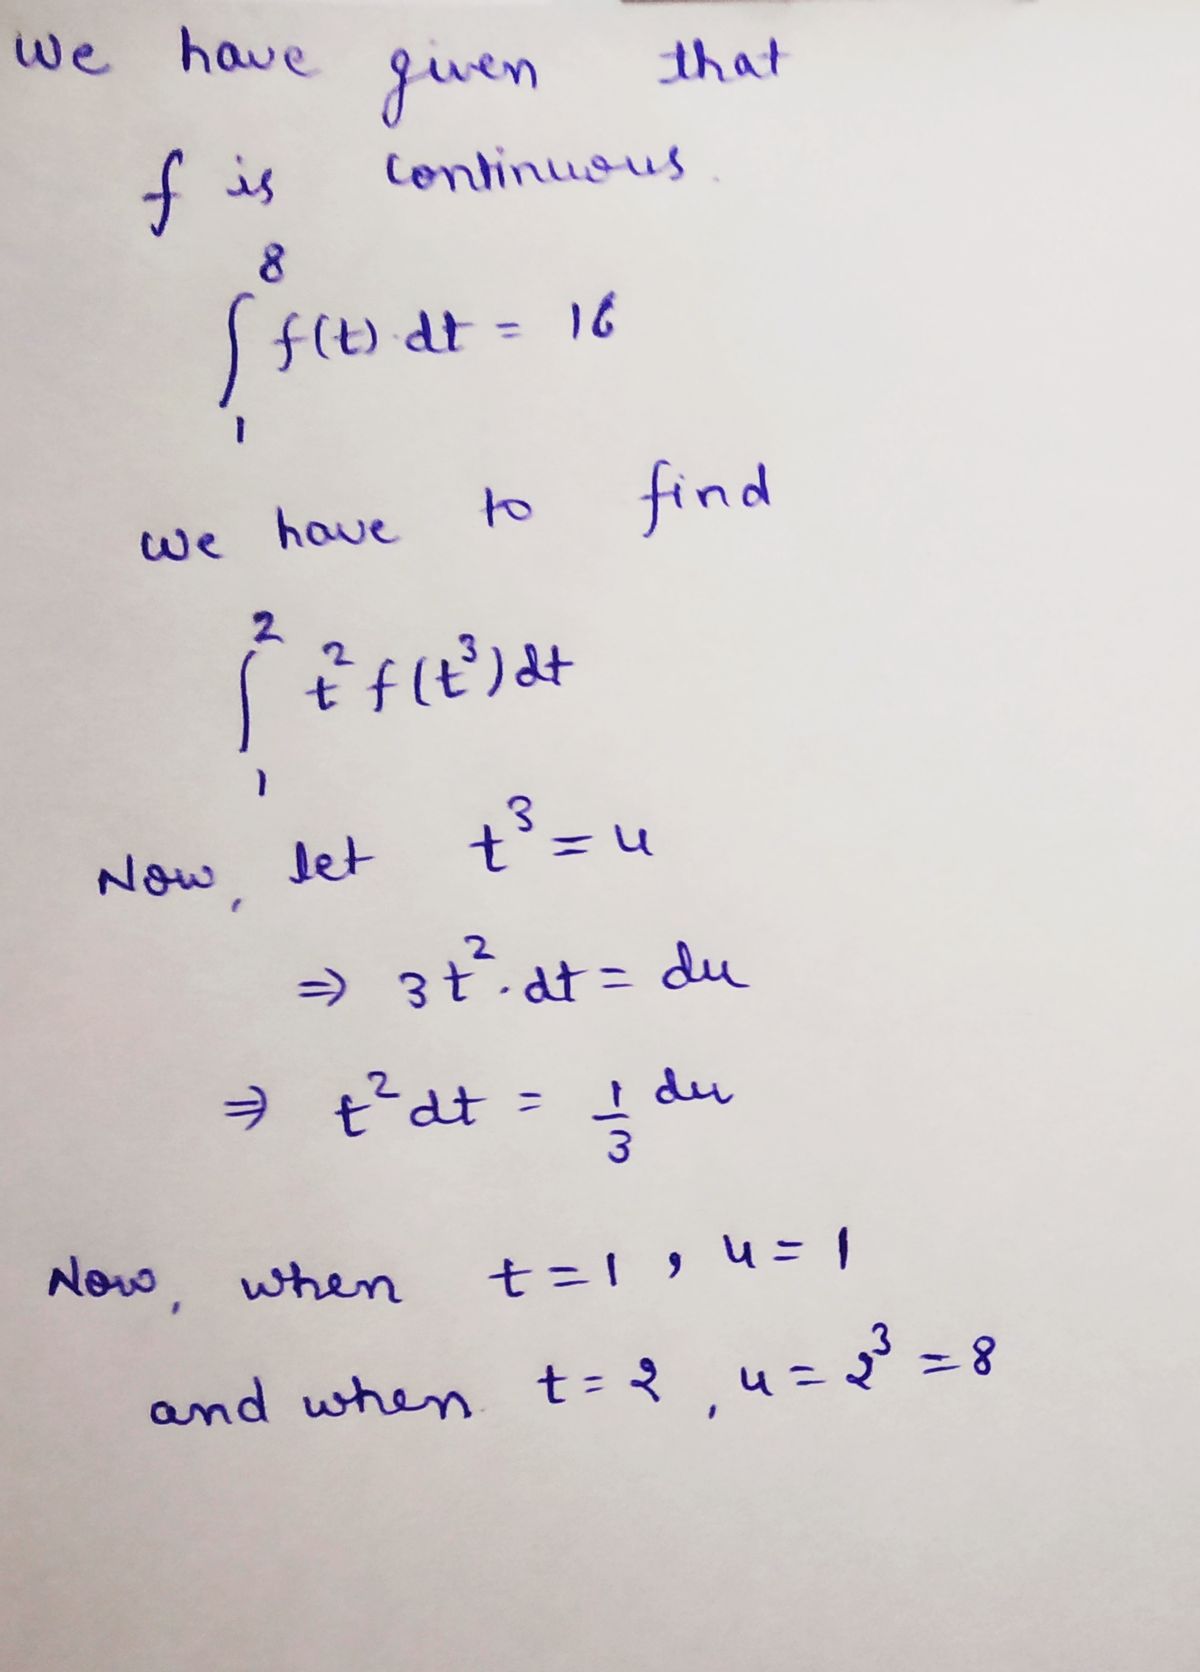 We have given that
f is continuous.
∫₁⁸ f(t) dt = 16
we have to find
∫₁² t² f(t³) dt
Now, let t³ = u
⇒ 3t². dt = du
⇒ t² dt = 1/3 du
Now, when t = 1, u = 1
and when t = 2, u = 2³ = 8